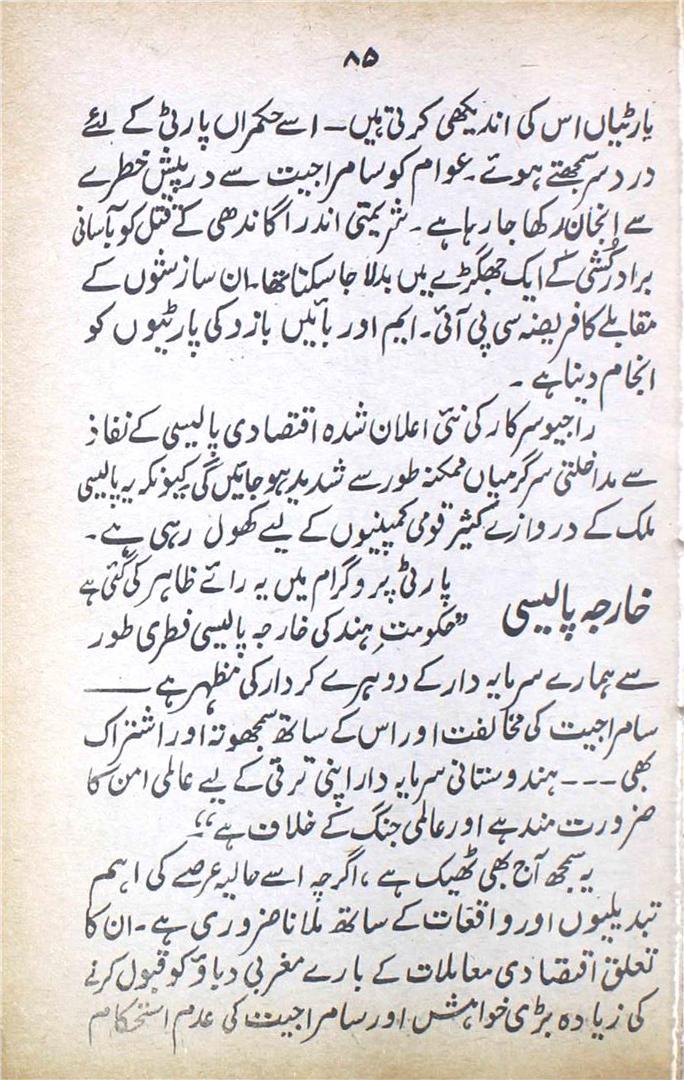 ۸۵
پارٹیاں اس کی اندیکھی کرتی ہیں۔ اسے حکمراں پارٹی کے لئے
درد سر سمجھتے ہوئے۔ عوام کو سامراجیت سے درپیش خطرے
سے انجان رکھا جا رہا ہے۔ شریمتی اندرا گاندھی کے قتل کو بآسانی
برادرکُشی کے ایک جھگڑے میں بدلا جا سکتا تھا۔ ان سازشوں کے
مقابلے کا فریضہ سی پی آئی۔ ایم اور بائیں بازو کی پارٹیوں کو
انجام دینا ہے ۔
راجیو سرکار کی نئی اعلان شدہ اقتصادی پالیسی کے نفاذ
سے مداخلتی سرگرمیاں ممکنہ طور سے شدید ہو جائیں گی کیونکہ یہ پالیسی
ملک کے دروازے کثیر قومی کمپنیوں کے لیے کھول رہی ہے۔
خارجہ پالیسی
پارٹی پروگرام میں یہ رائے ظاہر کی گئی ہے
”حکومتِ ہند کی خارجہ پالیسی فطری طور
سے ہمارے سرمایہ دار کے دوہرے کردار کی مظہر ہے ——
سامراجیت کی مخالفت اور اس کے ساتھ سمجھوتہ اور اشتراک
بھی ۔۔۔ ہندوستانی سرمایہ دار اپنی ترقی کے لیے عالمی امن کا
ضرورت مند ہے اور عالمی جنگ کے خلاف ہے“
یہ سمجھ آج بھی ٹھیک ہے ، اگرچہ اسے حالیہ عرصے کی اہم
تبدیلیوں اور واقعات کے ساتھ ملانا ضروری ہے۔ ان کا
تعلق اقتصادی معاملات کے بارے مغربی دباؤ کو قبول کرنے
کی زیادہ بڑی خواہش اور سامراجیت کی عدم استحکام